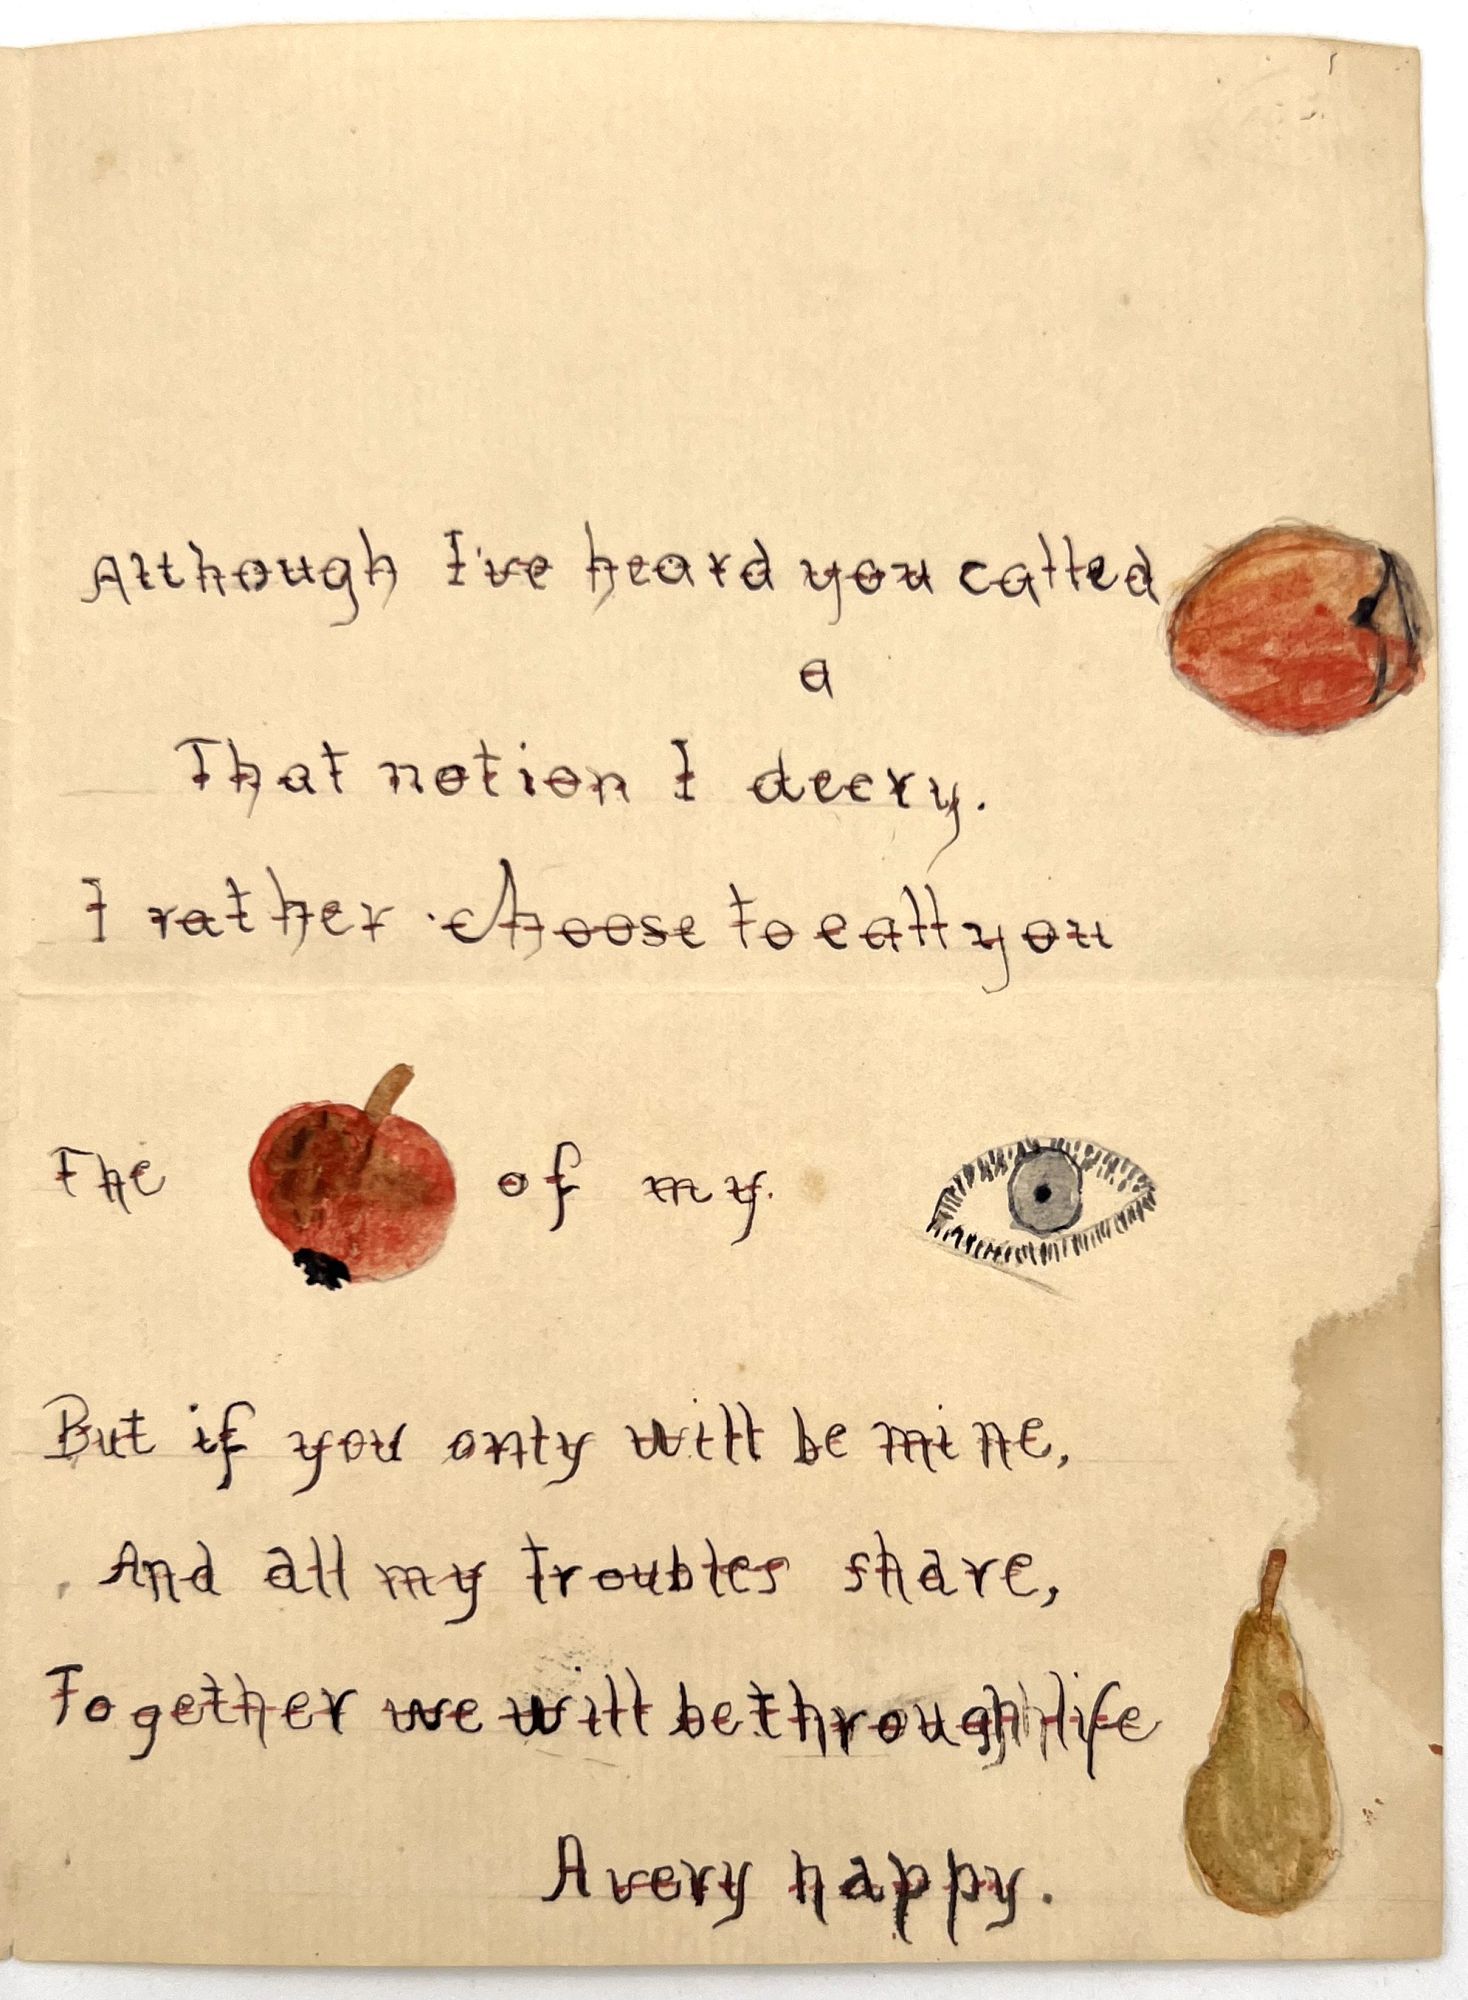 Although I've heard you called
a
That notion I decry.
I rather choose to call you
The of my.
But if you only will be mine,
And all my troubles share,
Together we will be through life
A very happy.